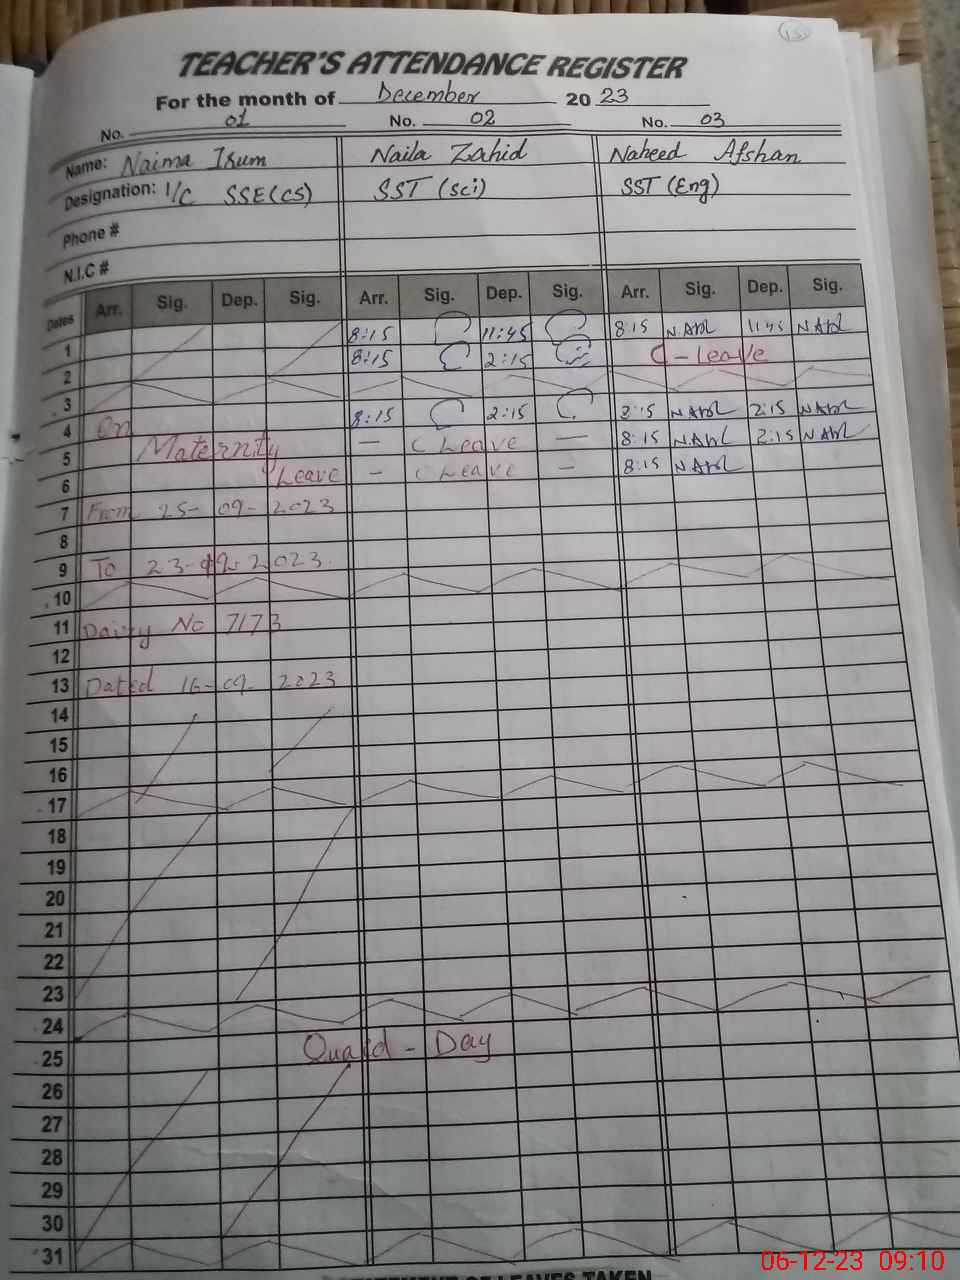 15
TEACHER'S ATTENDANCE REGISTER
For the month of December 2023
No. 01 No. 02 No. 03
Name: Naima Irum Naila Zahid Naheed Afshan
Designation: I/C SSE(CS) SST (Sci) SST (Eng)
Phone #
N.I.C #
Dates Arr. Sig. Dep. Sig. Arr. Sig. Dep. Sig. Arr. Sig. Dep. Sig.
1 8:15 11:45 8:15 11:45
2 8:15 2:15 C-Leave
3
4 On 8:15 2:15 8:15 2:15
5 Maternity — C Leave — 8:15 2:15
6 Leave — C Leave — 8:15
7 From 25-09-2023
8
9 To 23-12-2023.
10
11 Dairy No 7173
12
13 Dated 16-09-2023
14
15
16
17
18
19
20
21
22
23
24
25 Quaid-Day
26
27
28
29
30
31
06-12-23 09:10